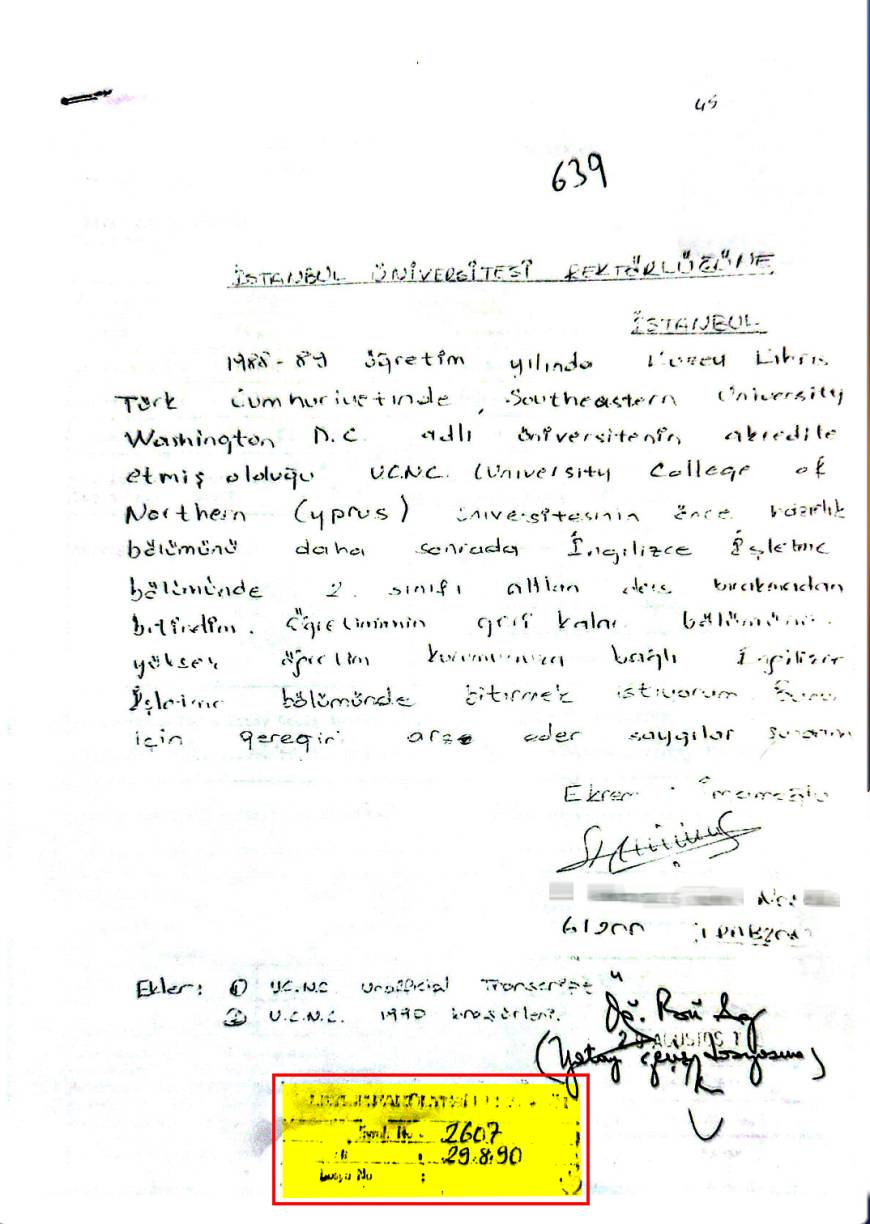 45
639
İSTANBUL ÜNİVERSİTESİ REKTÖRLÜĞÜNE
İSTANBUL
1988-89 öğretim yılında Kuzey Kıbrıs
Türk Cumhuriyetinde, Southeastern University
Washington D.C. adlı üniversitenin akredite
etmiş olduğu U.C.N.C. (University College of
Northern Cyprus) üniversitesinin önce hazırlık
bölümünü daha sonrada İngilizce İşletme
bölümünde 2. sınıfı alttan ders bırakmadan
bitirdim. Öğretimimin geri kalan bölümünü
yüksek öğretim kurumunuza bağlı İngilizce
İşletme bölümünde bitirmek istiyorum
için gereğini arz eder saygılar sunarım
Ekrem İmamoğlu
No:
61200 TRABZON
Ekler: 1 U.C.N.C unofficial Transcript
2 U.C.N.C. 1990 broşürleri.
AĞUSTOS
(Yatay geçiş dosyasına)
2607
: 29.8.90
Dosya No :